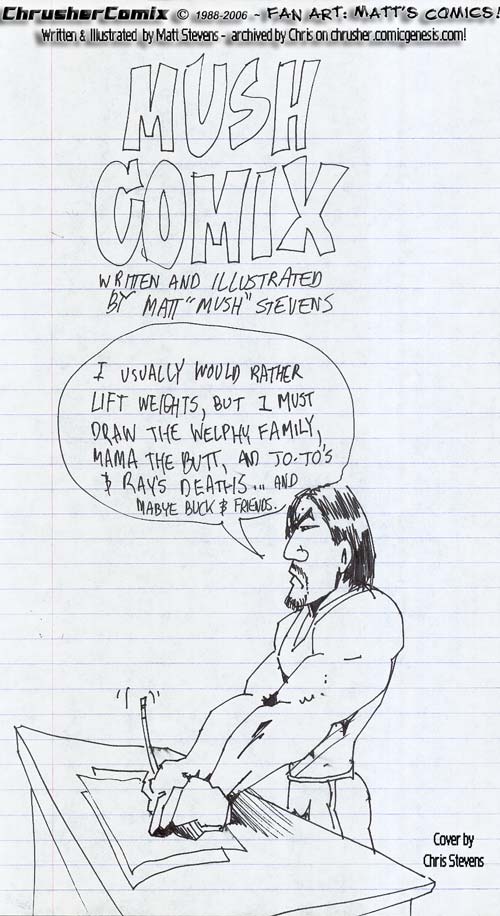 ChrusherComix © 1988-2006 - FAN ART: MATT'S COMICS!
Written & Illustrated by Matt Stevens - archived by Chris on chrusher.comicgenesis.com!
MUSH
COMIX
WRITTEN AND ILLUSTRATED
BY MATT "MUSH" STEVENS
I USUALLY WOULD RATHER
LIFT WEIGHTS, BUT I MUST
DRAW THE WELPHY FAMILY,
MAMA THE BUTT, AND JO-JO'S
& RAY'S DEATHS... AND
MABYE BUCK & FRIENDS.
Cover by
Chris Stevens